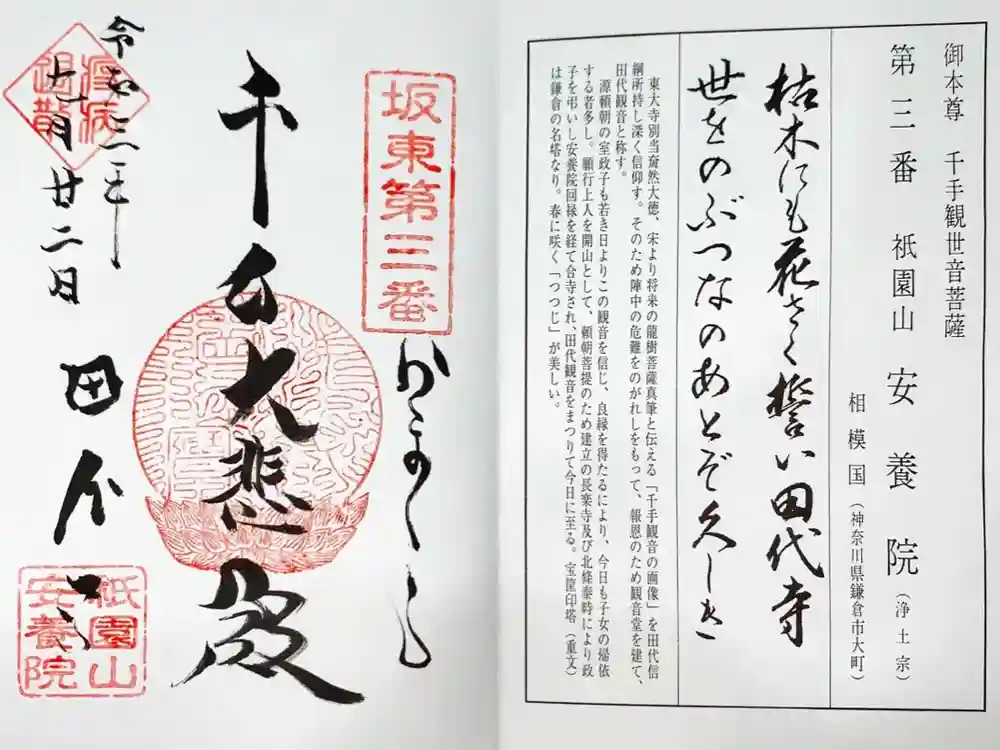 御本尊 千手観世音菩薩
第三番 祇園山 安養院(浄土宗)
相模国(神奈川県鎌倉市大町)
枯木にも花さく誓い田代寺
世をのぶつなのあとぞ久しき
東大寺別当奝然大徳、宋より将来の龍樹菩薩真筆と伝える「千手観音の画像」を田代信
綱所持し深く信仰す。そのため陣中の危難をのがれしをもって、報恩のため観音堂を建て、
田代観音と称す。
源頼朝の室政子も若き日よりこの観音を信じ、良縁を得たるにより、今日も子女の帰依
する者多し。願行上人を開山として、頼朝菩提のため建立の長楽寺及び北條泰時により政
子を弔いし安養院回縁を経て合寺され、田代観音をまつりて今日に至る。宝筐印塔(重文)
は鎌倉の名塔なり。春に咲く「つつじ」が美しい。
坂東第三番
かまくら
千手大悲殿
田代寺
令和三年
十一月廿二日
疫病
退散
祇園山
安養院